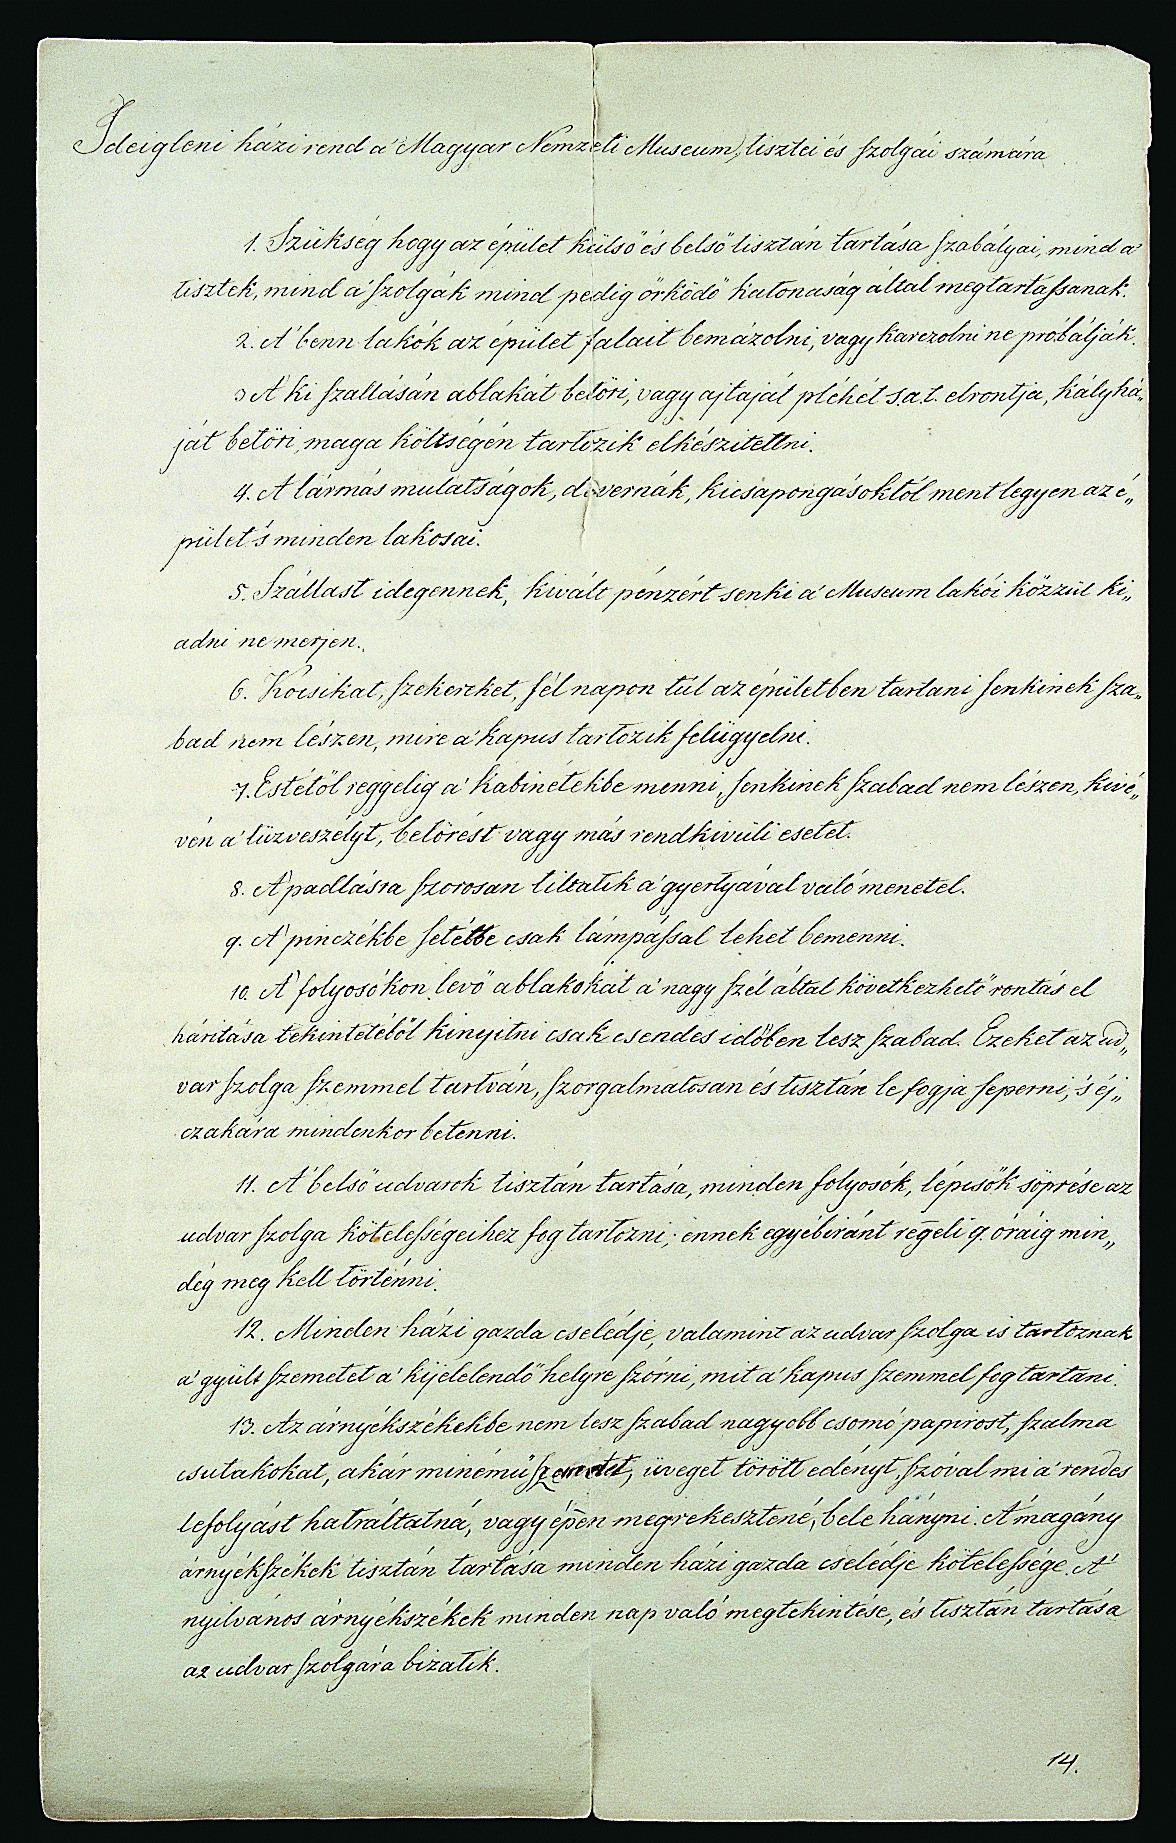 Ideigleni házi rend a' Magyar Nemzeti Museum, tisztei és szolgái számára
1. Szükség hogy az épület külső és belső tisztán tartása szabályai, mind a'
tisztek, mind a' szolgák mind pedig őrködő katonaság által megtartassanak.
2. A' benn lakók az épület falait bemázolni, vagy karczolni ne próbálják.
3 A' ki szallásán ablakát betöri, vagy ajtaját pléhét s.a.t. elrontja, kályhá„
ját betöri, maga költségén tartozik elkészitettni.
4. A lármás mulatságok, divernák, kicsapongásoktól ment legyen az é„
pület 's minden lakosai.
5. Szállast idegennek, kivált pénzért senki a' Museum lakói közzül ki„
adni ne merjen.
6. Kocsikat, szekereket, fél napon túl az épületben tartani senkinek sza„
bad nem lészen, mire a' kapus tartozik felügyelni.
7. Estétől reggelig a' kabinétekbe menni, senkinek szabad nem lészen, kivé„
vén a' tüzveszélyt, betörést vagy más rendkivüli esetet.
8. A' padlásra szorosan tiltatik a' gyertyával való menetel.
9. A' pinczékbe setétbe csak lámpással lehet bemenni.
10. A' folyosókon levő ablakokat a' nagy szél által következhető rontás el
háritása tekintetéből kinyitni csak csendes időben lesz szabad. Ezeket az ud„
var szolga szemmel tartván, szorgalmatosan és tisztán le fogja seperni, 's éj„
czakára mindenkor betenni.
11. A' belső udvarok tisztán tartása, minden folyosók, lépcsők söprése az
udvar szolga kötelességeihez fog tartozni; ennek egyébiránt regeli 9. óráig min„
dég meg kell történni.
12. Minden házi gazda cselédje, valamint az udvar szolga is tartoznak
a' gyült szemetet a' kijelelendő helyre szórni, mit a' kapus szemmel fog tartani.
13. Az árnyékszékekbe nem lesz szabad nagyobb csomó papirost, szalma
csutakokat, akár minémü szemetet, üveget törött edényt, szóval mi a' rendes
lefolyást hatráltatná, vagy épen megrekesztené, bele hányni. A' magány
árnyékszékek tisztán tartása minden házi gazda cselédje kötelessége. A'
nyilvános árnyékszékek minden nap való megtekintése, és tisztán tartása
az udvar szolgára bizatik.
14.